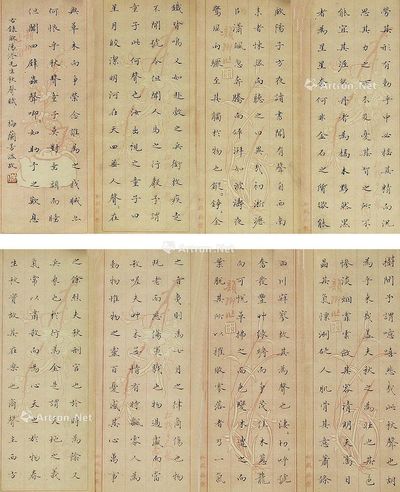 勞其形有動乎中必搖其精而況
思其力之所不及憂其智之所不
能宜其渥然丹者為槁木黟然黑
者為星星奈何非金石之質欲能
歐陽子方夜讀書聞有聲自西南
來者悚然而聽之曰異哉初淅瀝
以瀟颯忽奔騰而砰湃如波濤夜
驚風雨驟至其觸於物也鏦錚金
鐵皆鳴又如赴敵之兵銜枚疾走
不聞號令但聞人馬之行聲予謂
童子此何聲也汝出視之童子曰
星月皎潔明河在天四無人聲聲在
與草木而爭榮念誰為之戕賊亦
何恨乎秋聲童子莫對垂頭而睡
但聞四壁蟲聲唧唧如助予之歎息
右錄歐陽修先生秋聲賦 梅蘭芳
樹間予謂噫嘻悲哉此秋聲也胡
為乎來哉蓋夫秋之為狀也其色
慘淡煙霏雲斂其容清明天高日
晶其氣慄冽砭人肌骨其意蕭條
山川寂寥故其為聲也淒切呼號
奮發豐草綠縟而爭茂佳木蔥蘢
而可悅草拂之而色變木遭之而
葉脫其所以摧敗零落者乃一氣
之音夷則為七月之律商傷也物
既老而悲傷夷戮也物過盛而當
殺嗟夫草木無情有時飄零人為
動物惟物之靈百憂感其心萬事
之餘烈夫秋刑官也於時為陰又
兵象也於行為金是謂天地之義
氣常以肅殺而為心天之於物春
生秋實故其在樂也商聲主西方